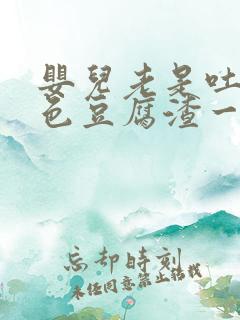 嬰兒老是吐
色豆腐渣一
忘却時刻
未经同意禁止转载